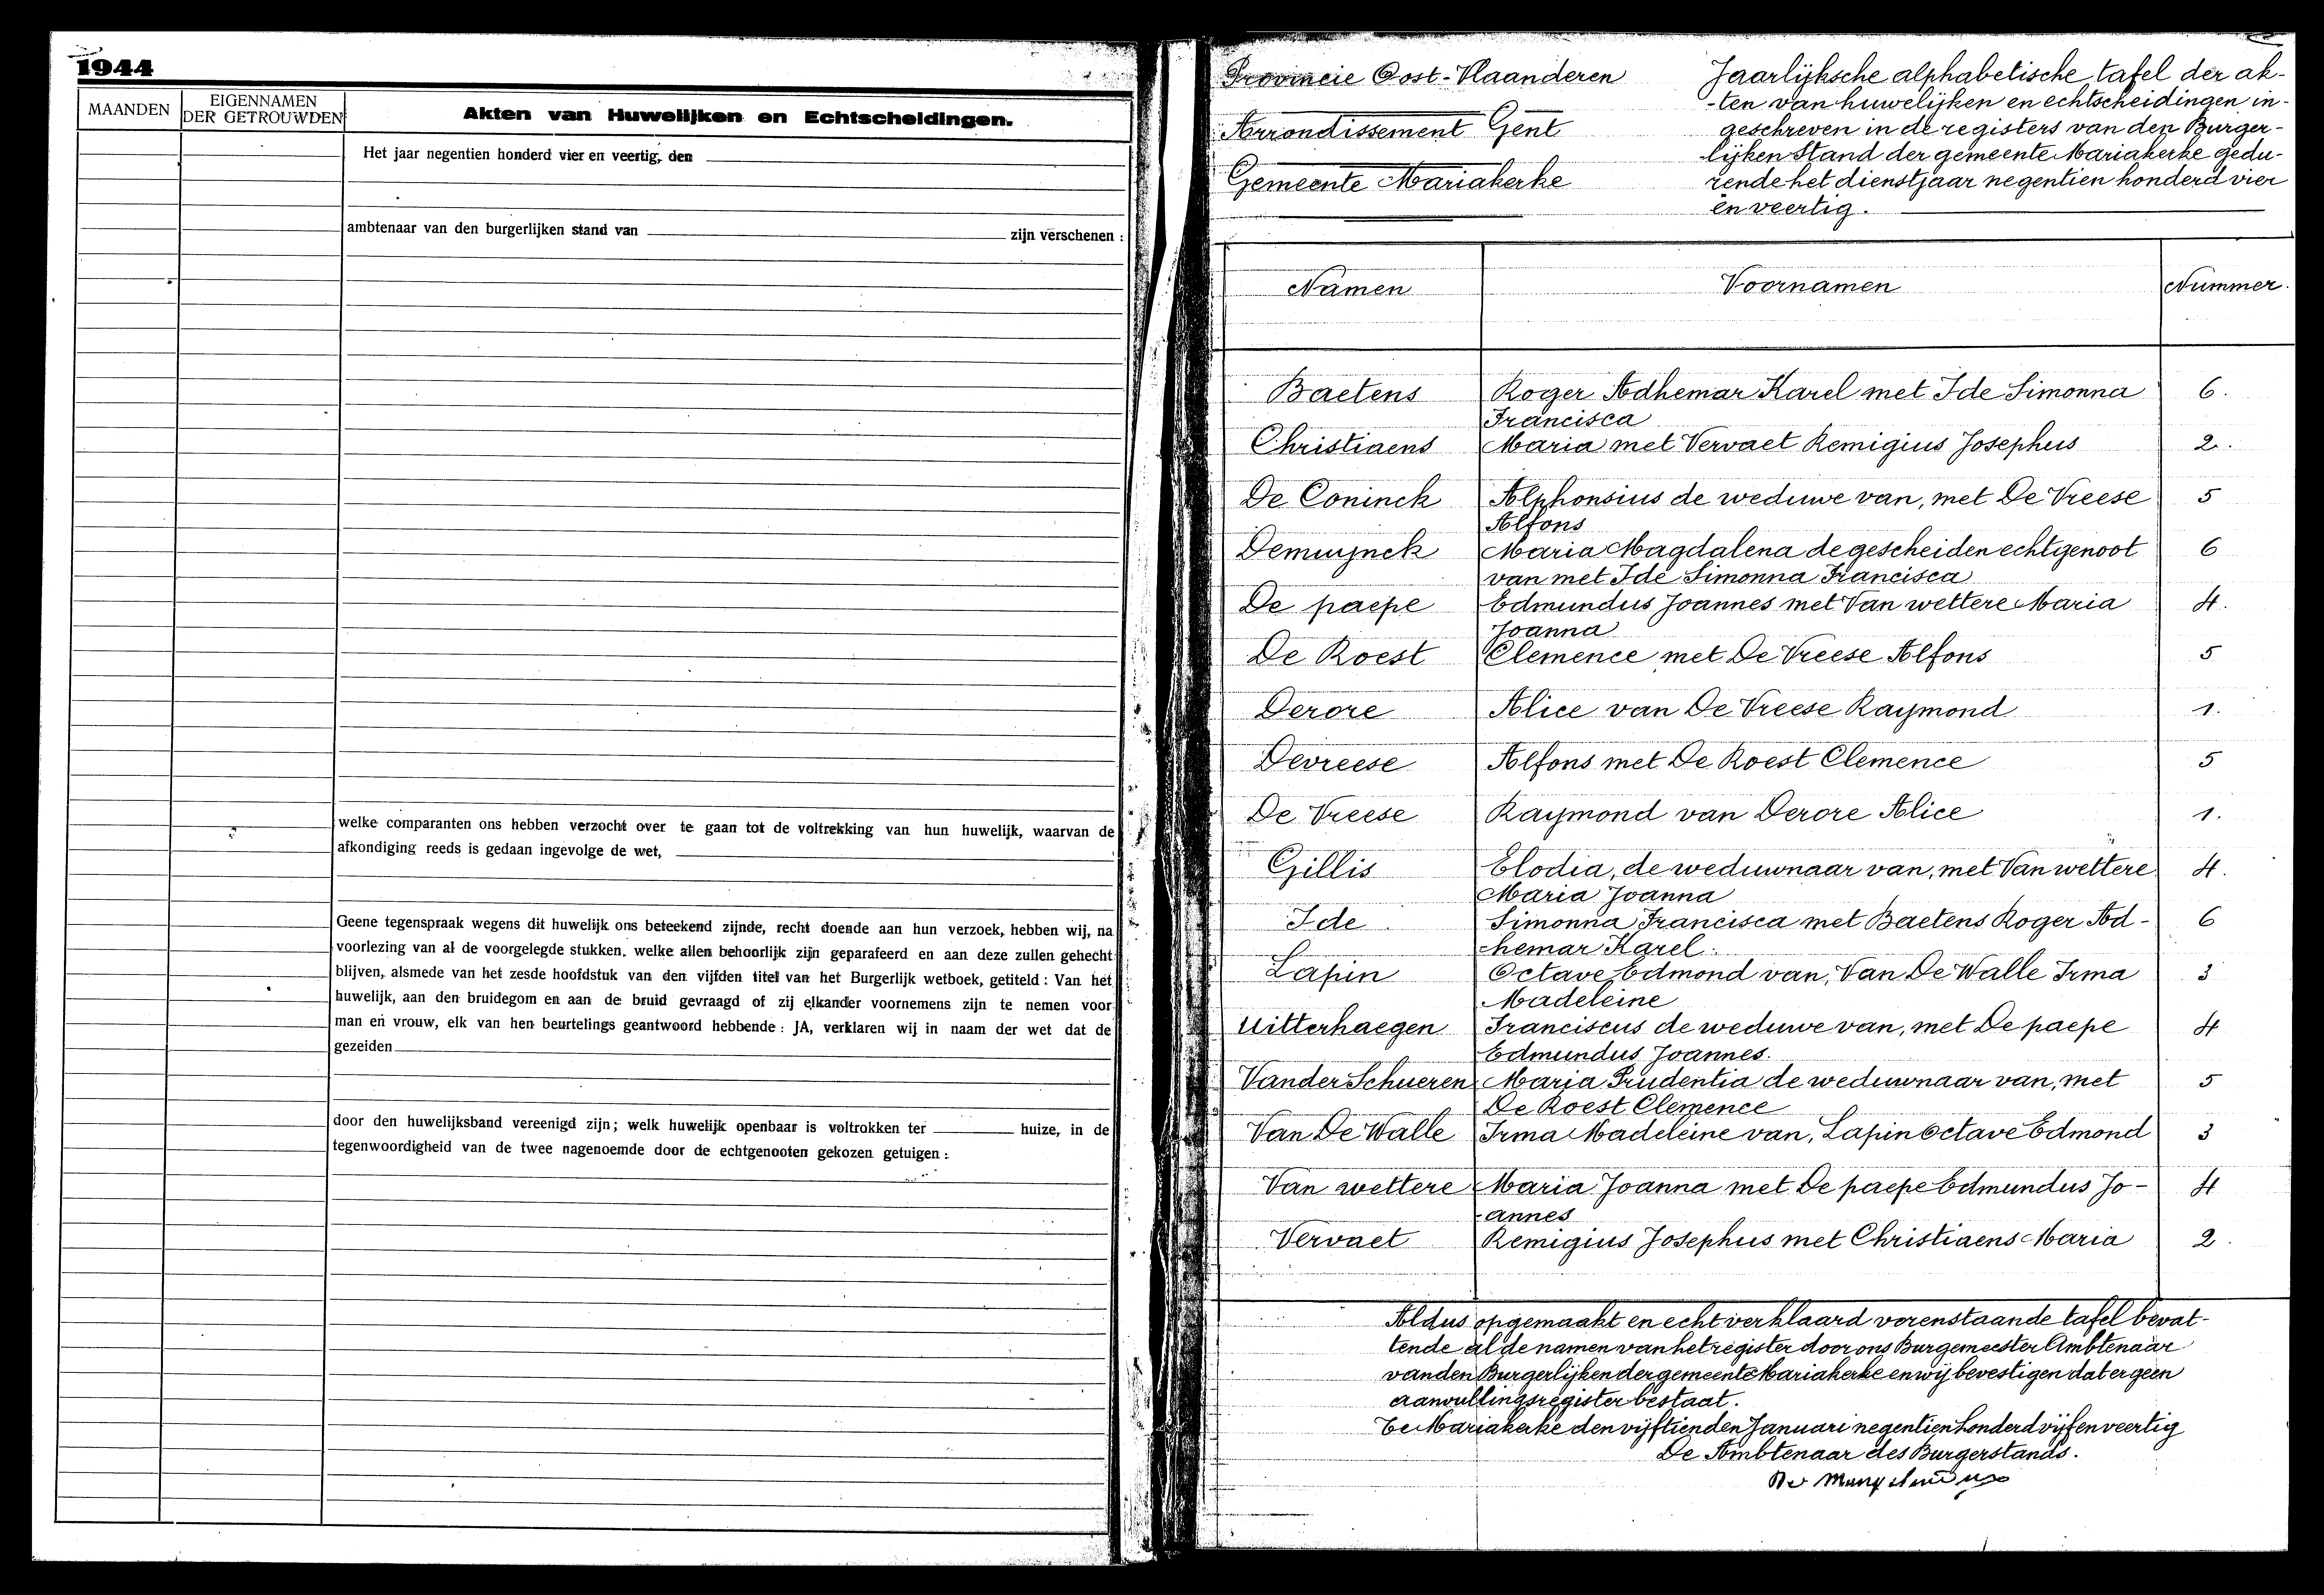 1944
MAANDEN
EIGENNAMEN
DER GETROUWDEN
Akten van Huwelijken en Echtscheidingen.
Het jaar negentien honderd vier en veertig, den
ambtenaar van den burgerlijken stand van zijn verschenen :
welke comparanten ons hebben verzocht over te gaan tot de voltrekking van hun huwelijk, waarvan de
afkondiging reeds is gedaan ingevolge de wet,
Geene tegenspraak wegens dit huwelijk ons beteekend zijnde, recht doende aan hun verzoek, hebben wij, na
voorlezing van al de voorgelegde stukken. welke allen behoorlijk zijn geparafeerd en aan deze zullen gehecht
blijven, alsmede van het zesde hoofdstuk van den vijfden titel van het Burgerlijk wetboek, getiteld : Van het
huwelijk, aan den bruidegom en aan de bruid gevraagd of zij elkander voornemens zijn te nemen voor
man en vrouw, elk van hen beurtelings geantwoord hebbende : JA, verklaren wij in naam der wet dat de
gezeiden
door den huwelijksband vereenigd zijn; welk huwelijk openbaar is voltrokken ter huize, in de
tegenwoordigheid van de twee nagenoemde door de echtgenooten gekozen getuigen :
Provincie Oost-Vlaanderen
Arrondissement Gent
Gemeente Mariakerke
Jaarlijksche alphabetische tafel der ak-
-ten van huwelijken en echtscheidingen in-
geschreven in de registers van den Burger-
lijken Stand der gemeente Mariakerke gedu-
rende het dienstjaar negentien honderd vier
en veertig.
Namen Voornamen Nummer.
Baetens Roger Adhemar Karel met Ide Simonna 6.
Francisca
Christiaens Maria met Vervaet Remigius Josephus 2.
De Coninck Alphonsius de weduwe van, met De Vreese 5
Alfons
Demuynck Maria Magdalena de gescheiden echtgenoot 6
van met Ide Simonna Francisca
De paepe Edmundus Joannes met Van wettere Maria 4.
Joanna
De Roest Clemence met De Vreese Alfons 5
Derore Alice van De Vreese Raymond 1.
Devreese Alfons met De Roest Clemence 5
De Vreese Raymond van Derore Alice 1.
Gillis Elodia, de weduwnaar van, met Van wettere 4.
Maria Joanna
Ide Simonna Francisca met Baetens Roger Ad- 6
hemar Karel.
Lapin Octave Edmond van, Van De Walle Irma 3
Madeleine
Uitterhaegen Franciscus de weduwe van, met De paepe 4
Edmundus Joannes.
Vander Schueren Maria Prudentia de weduwnaar van, met 5
De Roest Clemence
Van De Walle Irma Madeleine van, Lapin Octave Edmond 3
Van wettere Maria Joanna met De paepe Edmundus Jo- 4
-annes
Vervaet Remigius Josephus met Christiaens Maria 2.
Aldus opgemaakt en echt verklaard vorenstaande tafel bevat-
tende al de namen van het register door ons Burgemeester Ambtenaar
van den Burgerlijken der gemeente Mariakerke en wij bevestigen dat er geen
aanvullingsregister bestaat.
Te Mariakerke den vijftienden Januari negentien honderd vijf en veertig
De Ambtenaar des Burgerstands.